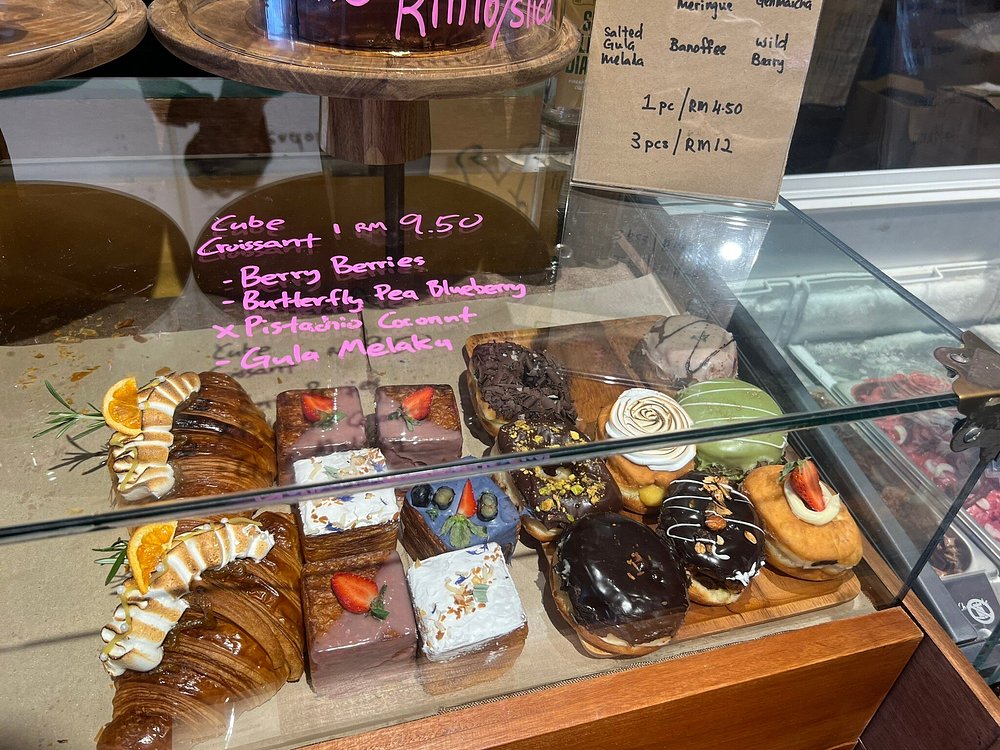 RM16/slice
Meringue Genmaicha
Salted Gula Melaka
Banoffee
Wild Berry
1 pc/RM 4.50
3 pcs/RM12
Cube Croissant 1 RM 9.50
- Berry Berries
- Butterfly Pea Blueberry
x Pistachio Coconut
- Gula Melaka